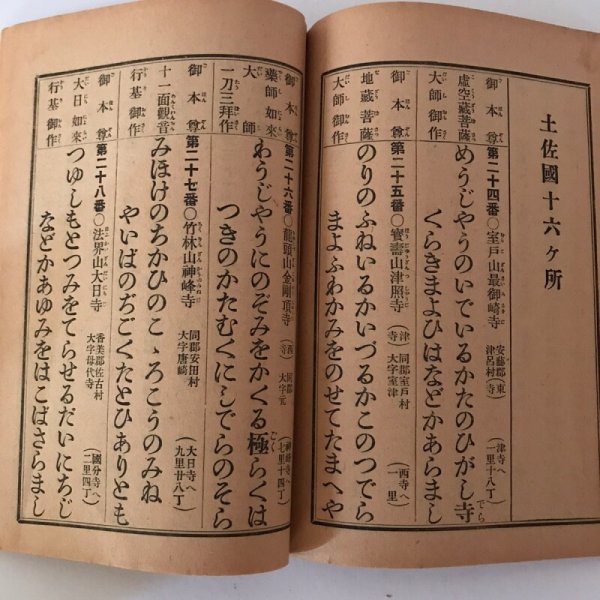 土佐國十六ヶ所
御本尊
虚空藏菩薩
大師御作
第二十四番○室戸山最御崎寺
安藝郡
津呂村
(東寺)
(津寺へ
一里十八丁)
めうじやうのいでいるかたのひがし寺
くらきまよひはなどかあらまし
御本尊
地藏菩薩
大師御作
第二十五番○寳壽山津照寺
(津寺)
同郡室戸村
大字室津
(西寺へ
一里)
のりのふねいるかいづるかこのつでら
まよふわかみをのせてたまへや
御本尊
藥師如來
大師
一刀三拜作
第二十六番○龍頭山金剛頂寺
(西寺)
同郡
大字元
(神峰寺へ
七里十四丁)
わうじやうにのぞみをかくる極らくは
つきのかたむくにしでらのそら
御本尊
十一面觀音
行基御作
第二十七番○竹林山神峰寺
同郡安田村
大字唐崎
(大日寺へ
九里廿八丁)
みほけのちかひのこゝろこうのみね
やいばのぢごくたとひありとも
御本尊
大日如來
行基御作
第二十八番○法界山大日寺
香美郡佐古村
大字母代寺
(國分寺へ
二里四丁)
つゆしもとつみをてらせるだいにちじ
などかあゆみをはこばさらまし